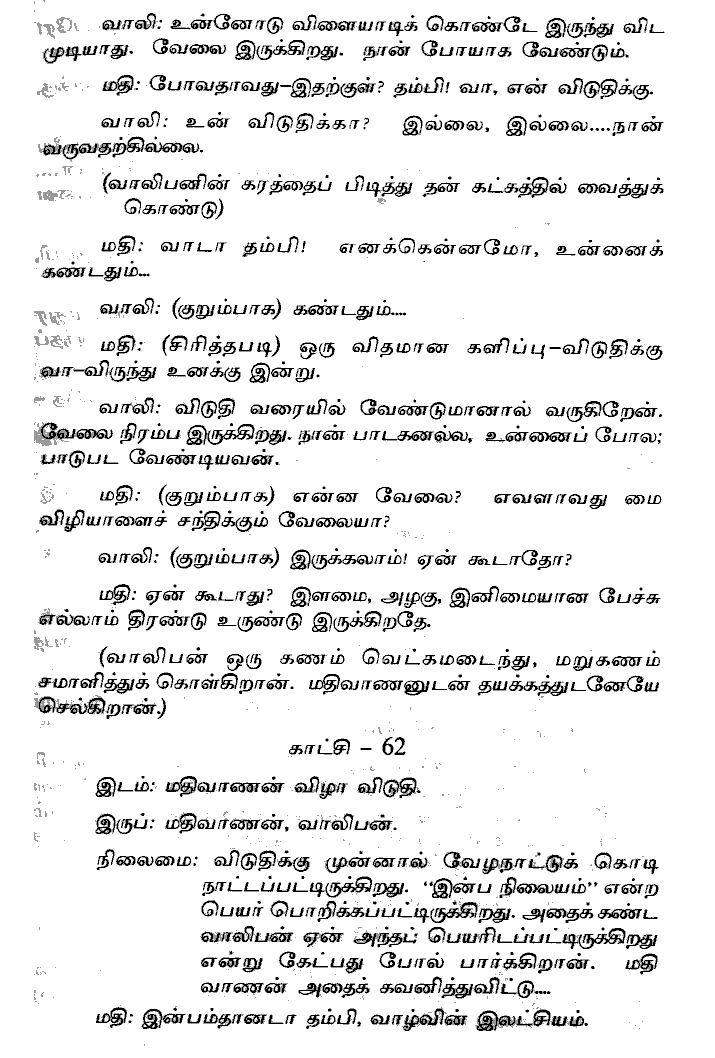 வாலி: உன்னோடு விளையாடிக் கொண்டே இருந்து விட
முடியாது. வேலை இருக்கிறது. நான் போயாக வேண்டும்.
மதி: போவதாவது–இதற்குள்? தம்பி! வா, என் விடுதிக்கு.
வாலி: உன் விடுதிக்கா? இல்லை, இல்லை....நான்
வருவதற்கில்லை.
(வாலிபனின் கரத்தைப் பிடித்து தன் கட்கத்தில் வைத்துக்
கொண்டு)
மதி: வாடா தம்பி! எனக்கென்னமோ, உன்னைக்
கண்டதும்...
வாலி: (குறும்பாக) கண்டதும்....
மதி: (சிரித்தபடி) ஒரு விதமான களிப்பு–விடுதிக்கு
வா–விருந்து உனக்கு இன்று.
வாலி: விடுதி வரையில் வேண்டுமானால் வருகிறேன்.
வேலை நிரம்ப இருக்கிறது. நான் பாடகனல்ல, உன்னைப் போல;
பாடுபட வேண்டியவன்.
மதி: (குறும்பாக) என்ன வேலை? எவளாவது மை
விழியாளைச் சந்திக்கும் வேலையா?
வாலி: (குறும்பாக) இருக்கலாம்! ஏன் கூடாதோ?
மதி: ஏன் கூடாது? இளமை, அழகு, இனிமையான பேச்சு
எல்லாம் திரண்டு உருண்டு இருக்கிறதே.
(வாலிபன் ஒரு கணம் வெட்கமடைந்து, மறுகணம்
சமாளித்துக் கொள்கிறான். மதிவாணனுடன் தயக்கத்துடனேயே
செல்கிறான்.)
காட்சி – 62
இடம்: மதிவாணன் விழா விடுதி.
இருப்: மதிவாணன், வாலிபன்.
நிலைமை: விடுதிக்கு முன்னால் வேழநாட்டுக் கொடி
நாட்டப்பட்டிருக்கிறது. “இன்ப நிலையம்” என்ற
பெயர் பொறிக்கப்பட்டிருக்கிறது. அதைக் கண்ட
வாலிபன் ஏன் அந்தப் பெயரிடப்பட்டிருக்கிறது
என்று கேட்பது போல் பார்க்கிறான். மதி
வாணன் அதைக் கவனித்துவிட்டு....
மதி: இன்பம்தானடா தம்பி, வாழ்வின் இலட்சியம்.